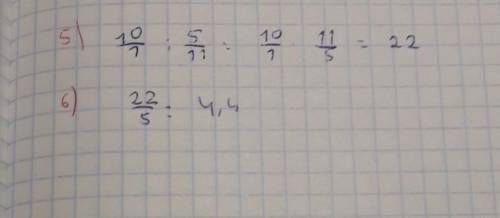 5) 10/1 : 5/11 = 10/1 · 11/5 = 22
6) 22/5 = 4,4